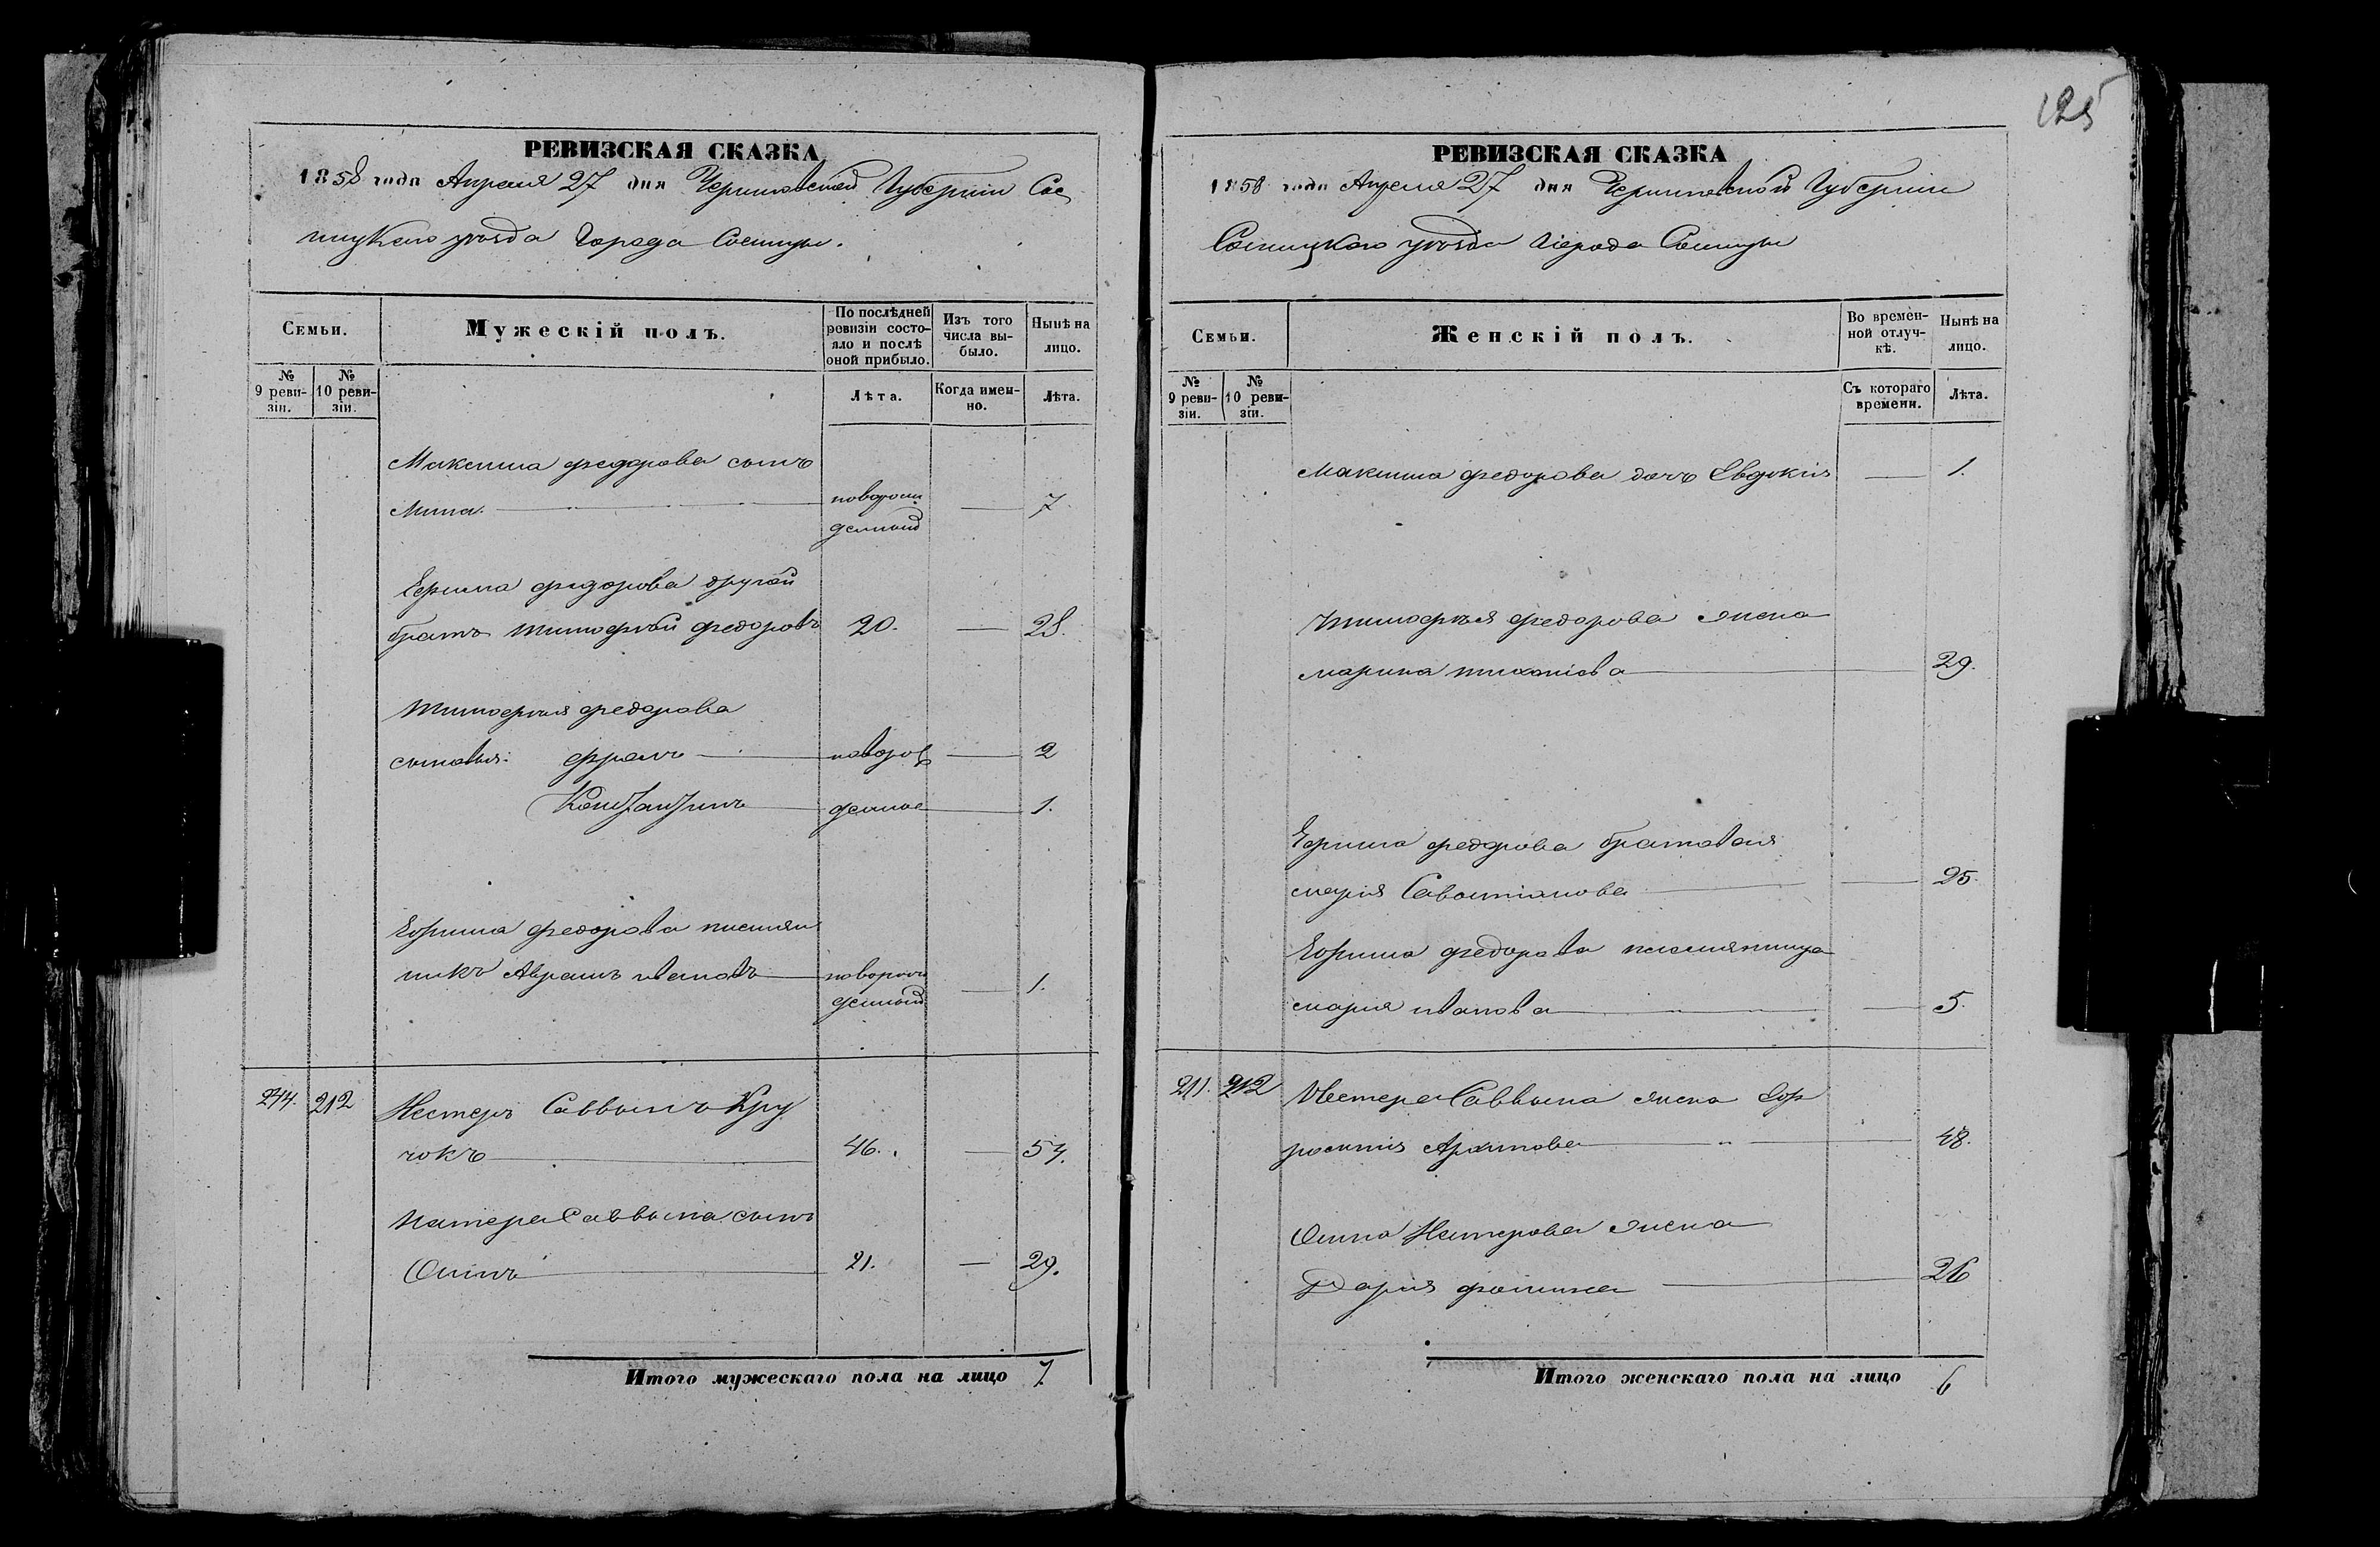 125
РЕВИЗСКАЯ СКАЗКА
1858 года Апреля 27 дня Черниговской Губернии Сос
ницкаго уезда Города Сосницы.
Семьи.
Мужескій полъ.
По послѣдней ревизіи состо-
яло и послѣ оной прибыло.
Изъ того числа вы-
было.
Нынѣ на лицо.
№ 9 реви-
зіи.
№ 10 реви-
зіи.
Лѣта.
Когда имен-
но.
Лѣта.
Максима Федорова сынъ
Мина. новорож 7
денный
Ефима Федорова другой
братъ Тимофей Федоровъ 20. 28.
Тимофея Федорова
сыновья: Фролъ новорож 2
Константинъ денные 1.
Ефима Федорова племян
никъ Аврамъ Ивановъ новорож 1.
денный
244. 212 Нестеръ Саввинъ Кру
чокъ 46. 54.
Нестера Саввина сынъ
Осипъ 21. 29.
Итого мужескаго пола на лицо 7
РЕВИЗСКАЯ СКАЗКА
1858 года Апреля 27 дня Черниговской Губернии
Сосницкаго уезда Города Сосницы
Семьи.
Женскій полъ.
Во времен-
ной отлуч-
кѣ.
Нынѣ на лицо.
№ 9 реви-
зіи.
№ 10 реви-
зіи.
Съ котораго времени.
Лѣта.
Максима Федорова дочь Евдокия 1.
Тимофея Федорова жена
Марина 29.
Ефима Федорова братовая
Мария Савостиянова 25.
Ефима Федорова племянница
Мария Иванова 5.
211. 212 Нестера Саввина жена Еф
росиния Архипова 48.
Осипа Нестерова жена
Дария Фомина 26
Итого женскаго пола на лицо 6